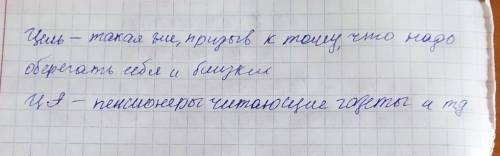 Цель – такая же, призыв к тому, что надо
оберегать себя и близких
ЦА – пенсионеры читающие газеты и тд